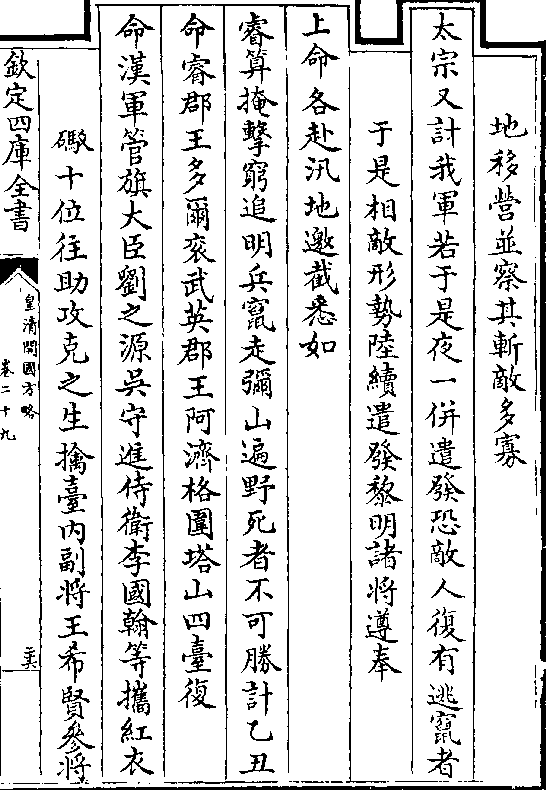 地移營並察其斬敵多寡
太宗又計我軍若于是夜一併遣發恐敵人復有逃竄者
于是相敵形勢陸續遣發黎明諸將遵奉
上命各赴汛地邀截悉如
睿算掩擊窮追明兵竄走彌山遍野死者不可勝計乙丑
命睿郡王多爾袞武英郡王阿濟格圍塔山四臺復
命漢軍管旗大臣劉之源吳守進侍衛李國翰等攜紅衣
礮十位往助攻克之生擒臺內副將王希賢參將
欽定四庫全書
皇清開國方略
卷二十九